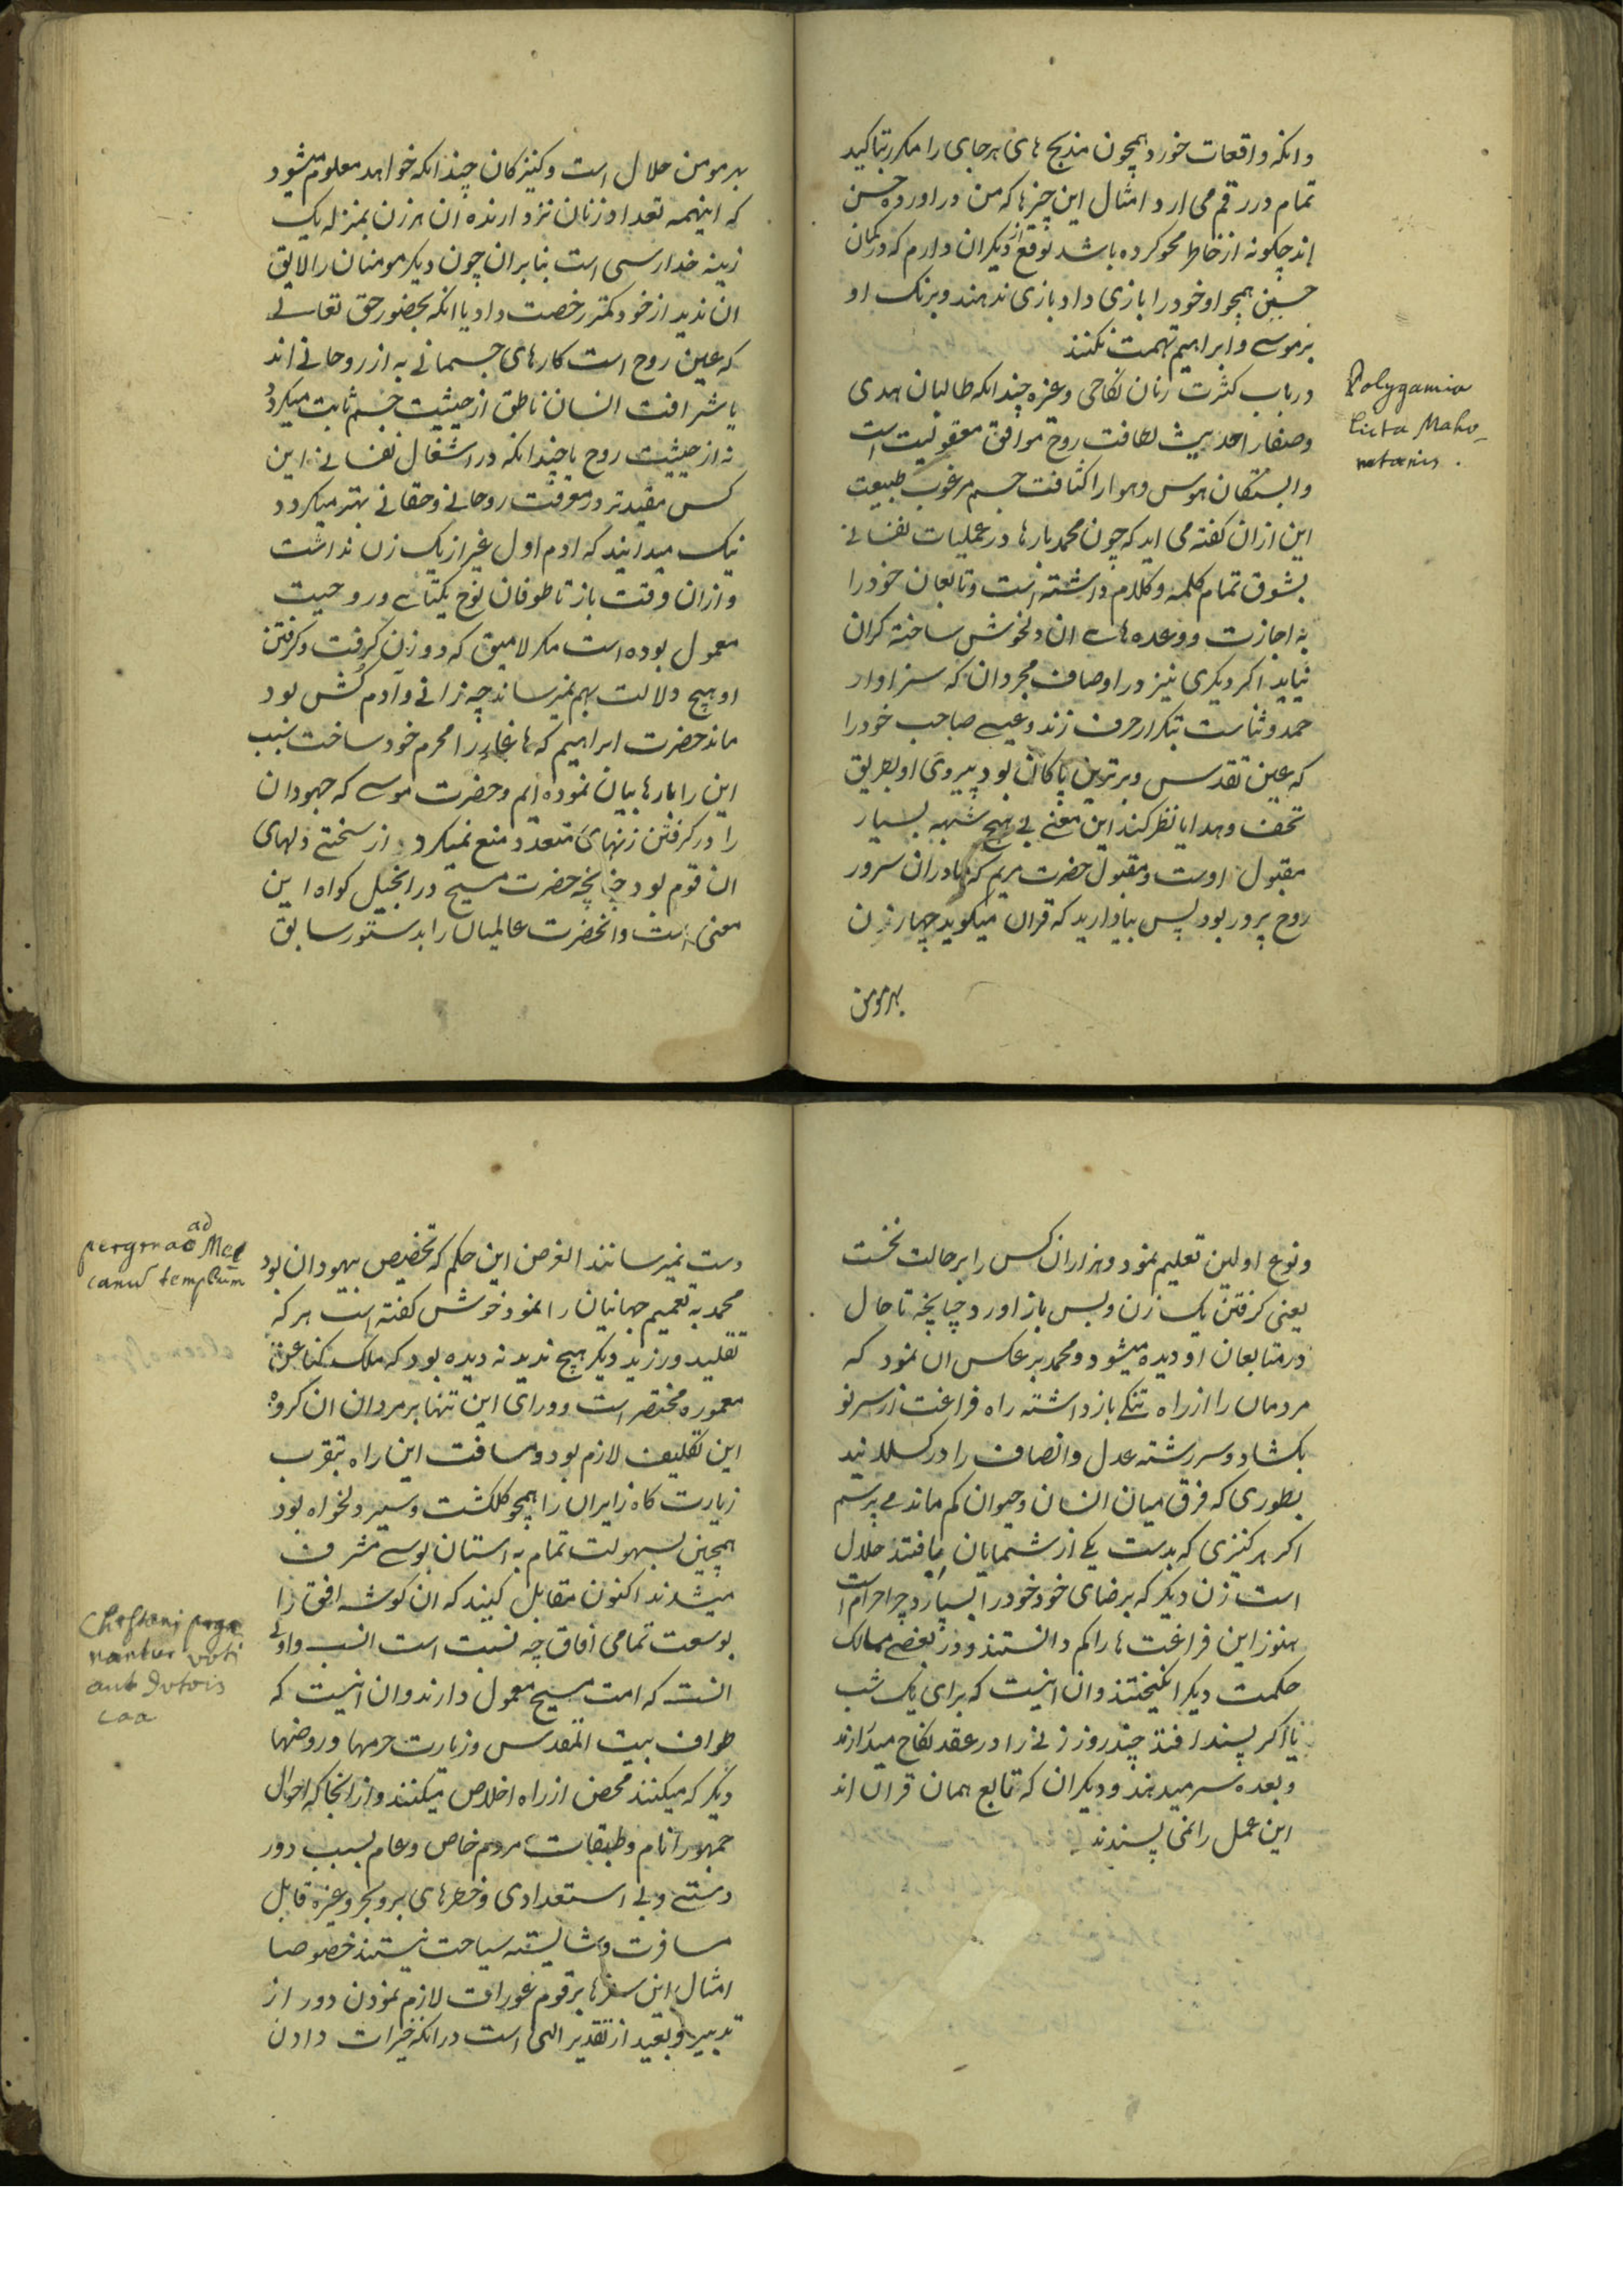 وانکه واقعات خورد همچون مذبح های هر جای را مکرر بتاکید
تمام در رقم می ارد امثال این چیزها که من در اورده حسن
اند چکونه از خاطر محو کرده باشد توقع از دیکران دارم که در کمان
همچو او خود را بازی داد بازی ندهند و برنک او
بر موسے و ابراهیم تهمت نکنند
در باب کثرت زنان نکاحی وغیره چندانکه طالبان هدی
لطافت روح موافق معقولیت است
وابستکان هوس وهوا را کثافت جسم مرغوب طبیعت
این ازان کفته می اید که چون محمد بارها در عملیات نفسانے
بشوق تمام کلمه وکلام داشته است وتابعان خود را
به اجازت و وعده هاے ان دلخوش ساخته کران
نیاید اکر دیکری نیز در اوصاف مجردان که سزاوار
حمد وثناست بتکرار حرف زند وعیسے صاحب خود را
که عین تقدس و برترین پاکان بود پیروی او بطریق
تحف وهدایا نظر کند این معنے بے هیچ شبهه بسیار
مقبول اوست و مقبول حضرت مریم که مادر ان سرور
روح پرور بود پس بیاد ارید که قران میکوید چهار زن
بهر مومن
Polygamia
licta Maho_
metanis .
بهر مومن حلال است وکنیزکان چندانکه خواهد معلوم میشود
که اینهمه تعداد زنان نزد ارنده ان هر زن بمنزله یک
زینه خدا رسی است بنابران چون دیکر مومنان را لایق
ان ندید از خود کمتر رخصت داد یا انکه بحضور حق تعالے
که عین روح است کارهای جسمانے به از روحانے اند
یا شرافت انسان ناطق از حیثیت جسم ثابت میکردد
نه از حیثیت روح یا چندانکه در اشغال نفسانے این
کس مقیدتر در معرفت روحانے وحقانے بهتر میکردد
نیک میدانید که ادم اول غیر از یک زن نداشت
وازان وقت باز تا طوفان نوح یکتاے در وحیت
معمول بوده است مکر لامیق که دو زن کرفت وکرفتن
او هیچ دلالت بهم نمیرساند چه زانے وادم کش بود
ماند حضرت ابراهیم که هاغار را محرم خود ساخت سبب
این را بارها بیان نموده ام وحضرت موسے که جهودان
را در کرفتن زنهای متعدد منع نمیکرد از سختے دلهای
ان قوم بود چنانچه حضرت مسیح در انجیل کواه این
معنی است وانحضرت عالمیان را بدستور سابق
ونوع اولین تعلیم نمود وهزاران کس را بر حالت نخست
یعنی کرفتن یک زن وبس باز اورد چنانچه تا حال
در متابعان او دیده میشود ومحمد بر عکس ان نمود که
مردمان را از راه تنکے باز داشته راه فراغت از سر نو
بکشاد وسررشته عدل وانصاف را در کسلانید
بطوری که فرق میان انسان وحیوان کم ماند مے پرسم
اکر هر کنیزی که بدست یکے از شمایان بیافتد حلال
است زن دیکر که برضای خود خود را بسپارد چرا حرام است
هنوز این فراغت ها را کم دانستند ودر بعضے ممالک
حکمت دیکر انکیختند وان انیست که برای یک شب
یا اکر پسند افتد چند روز زنے را در عقد نکاح میدارند
وبعده سر میدهند ودیکران که تابع همان قران اند
این عمل را نمی پسندند
ad
Mec
canū templum
دست نمیرسانند الغرض این حکم که تخصیص یهودان بود
محمد به تعمیم جهانیان را نمود خوش کفته است هر که
تقلید ورزید دیکر هیچ ندید نه دیده بود که ملک کنعان
معموره مختصر است وورای این تنها بر مردان ان کروه
این تکلیف لازم بود ومسافت این راه بتقرب
زیارت کاه زایران را همچو کلکشت وسیر دلخواه بود
همچنین بسهولت تمام به استان بوسے مشرف
میشدند اکنون مقابل کنید که ان کوشه افق را
بوسعت تمامی افاق چه نسبت است انسب واولے
انست که امت مسیح معمول دارند وان انیست که
طواف بیت المقدس وزیارت حرمها وروضها
دیکر که میکنند محض از راه اخلاص میکنند وازانجا که احوال
جمهور انام وطبقات مردم خاص وعام بسبب دور
دستے وبے استعدادی وخطرهای بر وبحر وغیره قابل
مسافرت وشایسته سیاحت نیستند خصوصا
امثال این سفرها بر قوم عورات لازم نمودن دور از
تدبیر وبعید از تقدیر الهی است در انکه خیرات دادن